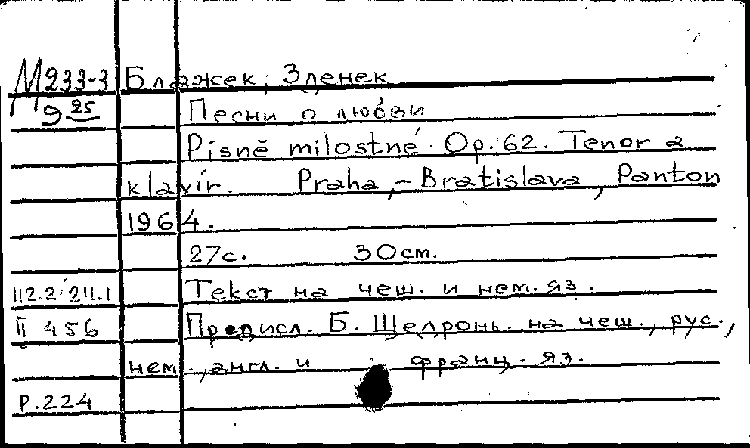 М233-3 Блажек, Зденек
9 25 Песни о любви
Písně milostné. Op. 62. Tenor a
klavír. Praha,-Bratislava, Panton
1964.
27с. 30см.
112.2; 211.1 Текст на чеш. и нем. яз.
II 456 Предисл. Б. на чеш., рус.,
нем., англ. и франц. яз.
Р.224